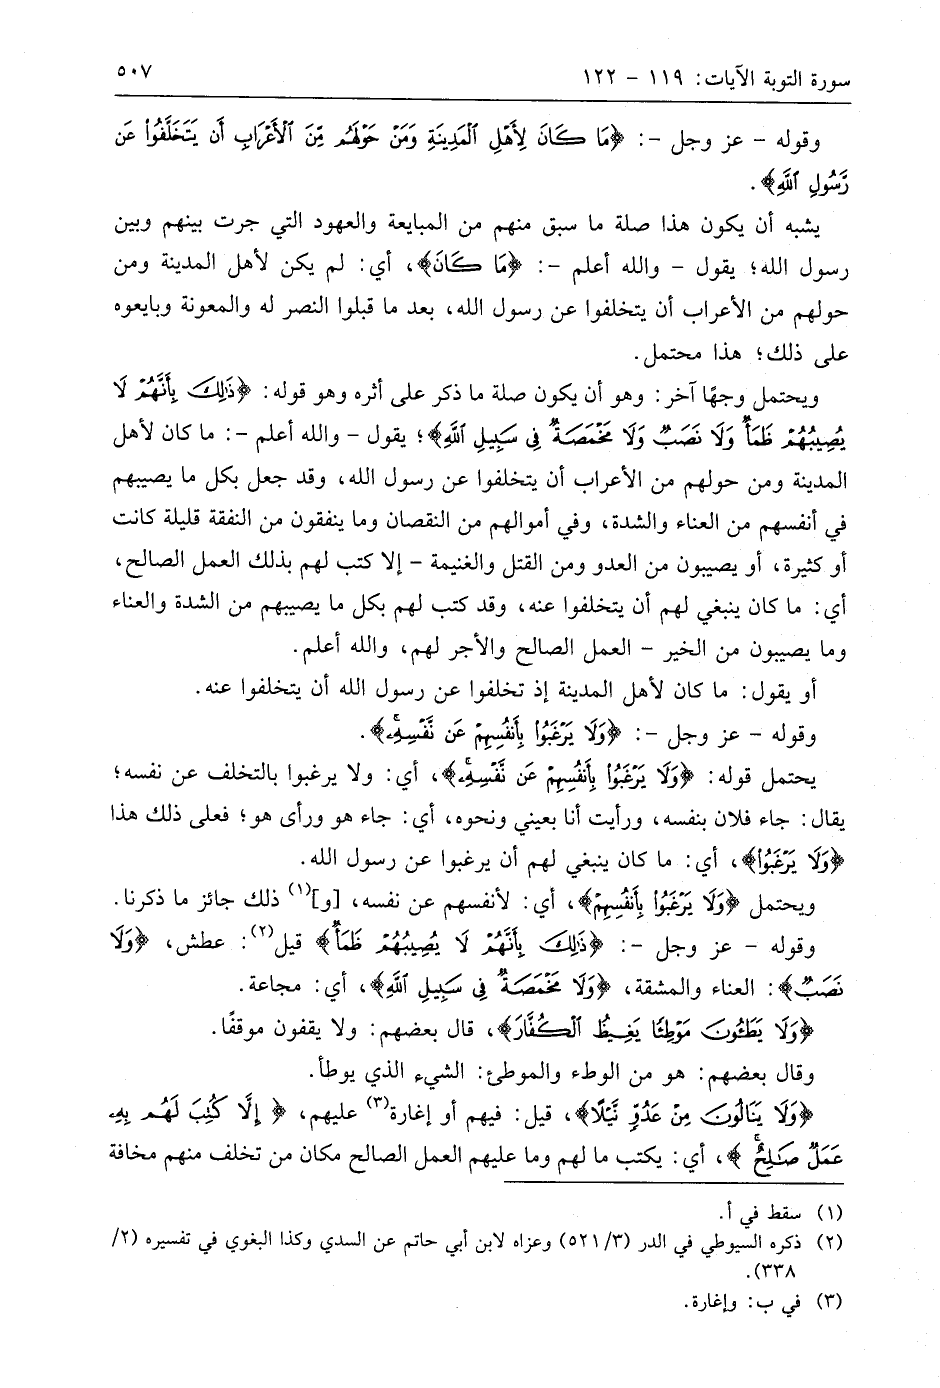 سورة التوبة الآيات: ١١٩ - ١٢٢
٥٠٧
وقوله - عز وجل -: ﴿مَا كَانَ لِأَهْلِ ٱلْمَدِينَةِ وَمَنْ حَوْلَهُم مِّنَ ٱلْأَعْرَابِ أَن يَتَخَلَّفُوا۟ عَن
رَّسُولِ ٱللَّهِ﴾.
يشبه أن يكون هذا صلة ما سبق منهم من المبايعة والعهود التي جرت بينهم وبين
رسول الله؛ يقول - والله أعلم -: ﴿مَا كَانَ﴾، أي: لم يكن لأهل المدينة ومن
حولهم من الأعراب أن يتخلفوا عن رسول الله، بعد ما قبلوا النصر له والمعونة وبايعوه
على ذلك؛ هذا محتمل.
ويحتمل وجهًا آخر: وهو أن يكون صلة ما ذكر على أثره وهو قوله: ﴿ذَٰلِكَ بِأَنَّهُمْ لَا
يُصِيبُهُمْ ظَمَأٌ وَلَا نَصَبٌ وَلَا مَخْمَصَةٌ فِى سَبِيلِ ٱللَّهِ﴾؛ يقول - والله أعلم -: ما كان لأهل
المدينة ومن حولهم من الأعراب أن يتخلفوا عن رسول الله، وقد جعل بكل ما يصيبهم
في أنفسهم من العناء والشدة، وفي أموالهم من النقصان وما ينفقون من النفقة قليلة كانت
أو كثيرة، أو يصيبون من العدو ومن القتل والغنيمة - إلا كتب لهم بذلك العمل الصالح،
أي: ما كان ينبغي لهم أن يتخلفوا عنه، وقد كتب لهم بكل ما يصيبهم من الشدة والعناء
وما يصيبون من الخير - العمل الصالح والأجر لهم، والله أعلم.
أو يقول: ما كان لأهل المدينة إذ تخلفوا عن رسول الله أن يتخلفوا عنه.
وقوله - عز وجل -: ﴿وَلَا يَرْغَبُوا۟ بِأَنفُسِهِمْ عَن نَّفْسِهِۦ﴾.
يحتمل قوله: ﴿وَلَا يَرْغَبُوا۟ بِأَنفُسِهِمْ عَن نَّفْسِهِۦ﴾، أي: ولا يرغبوا بالتخلف عن نفسه؛
يقال: جاء فلان بنفسه، ورأيت أنا بعيني ونحوه، أي: جاء هو ورأى هو؛ فعلى ذلك هذا
﴿وَلَا يَرْغَبُوا۟﴾، أي: ما كان ينبغي لهم أن يرغبوا عن رسول الله.
ويحتمل ﴿وَلَا يَرْغَبُوا۟ بِأَنفُسِهِمْ﴾، أي: لأنفسهم عن نفسه، [و](١) ذلك جائز ما ذكرنا.
وقوله - عز وجل -: ﴿ذَٰلِكَ بِأَنَّهُمْ لَا يُصِيبُهُمْ ظَمَأٌ﴾ قيل(٢): عطش، ﴿وَلَا
نَصَبٌ﴾: العناء والمشقة، ﴿وَلَا مَخْمَصَةٌ فِى سَبِيلِ ٱللَّهِ﴾، أي: مجاعة.
﴿وَلَا يَطَـُٔونَ مَوْطِئًا يَغِيظُ ٱلْكُفَّارَ﴾، قال بعضهم: ولا يقفون موقفًا.
وقال بعضهم: هو من الوطء والموطئ: الشيء الذي يوطأ.
﴿وَلَا يَنَالُونَ مِنْ عَدُوٍّ نَّيْلًا﴾، قيل: فيهم أو إغارة(٣) عليهم، ﴿إِلَّا كُتِبَ لَهُم بِهِۦ
عَمَلٌ صَٰلِحٌ﴾، أي: يكتب ما لهم وما عليهم العمل الصالح مكان من تخلف منهم مخافة
(١) سقط في أ.
(٢) ذكره السيوطي في الدر (٥٢١/٣) وعزاه لابن أبي حاتم عن السدي وكذا البغوي في تفسيره (٢/
٣٣٨).
(٣) في ب: وإغارة.